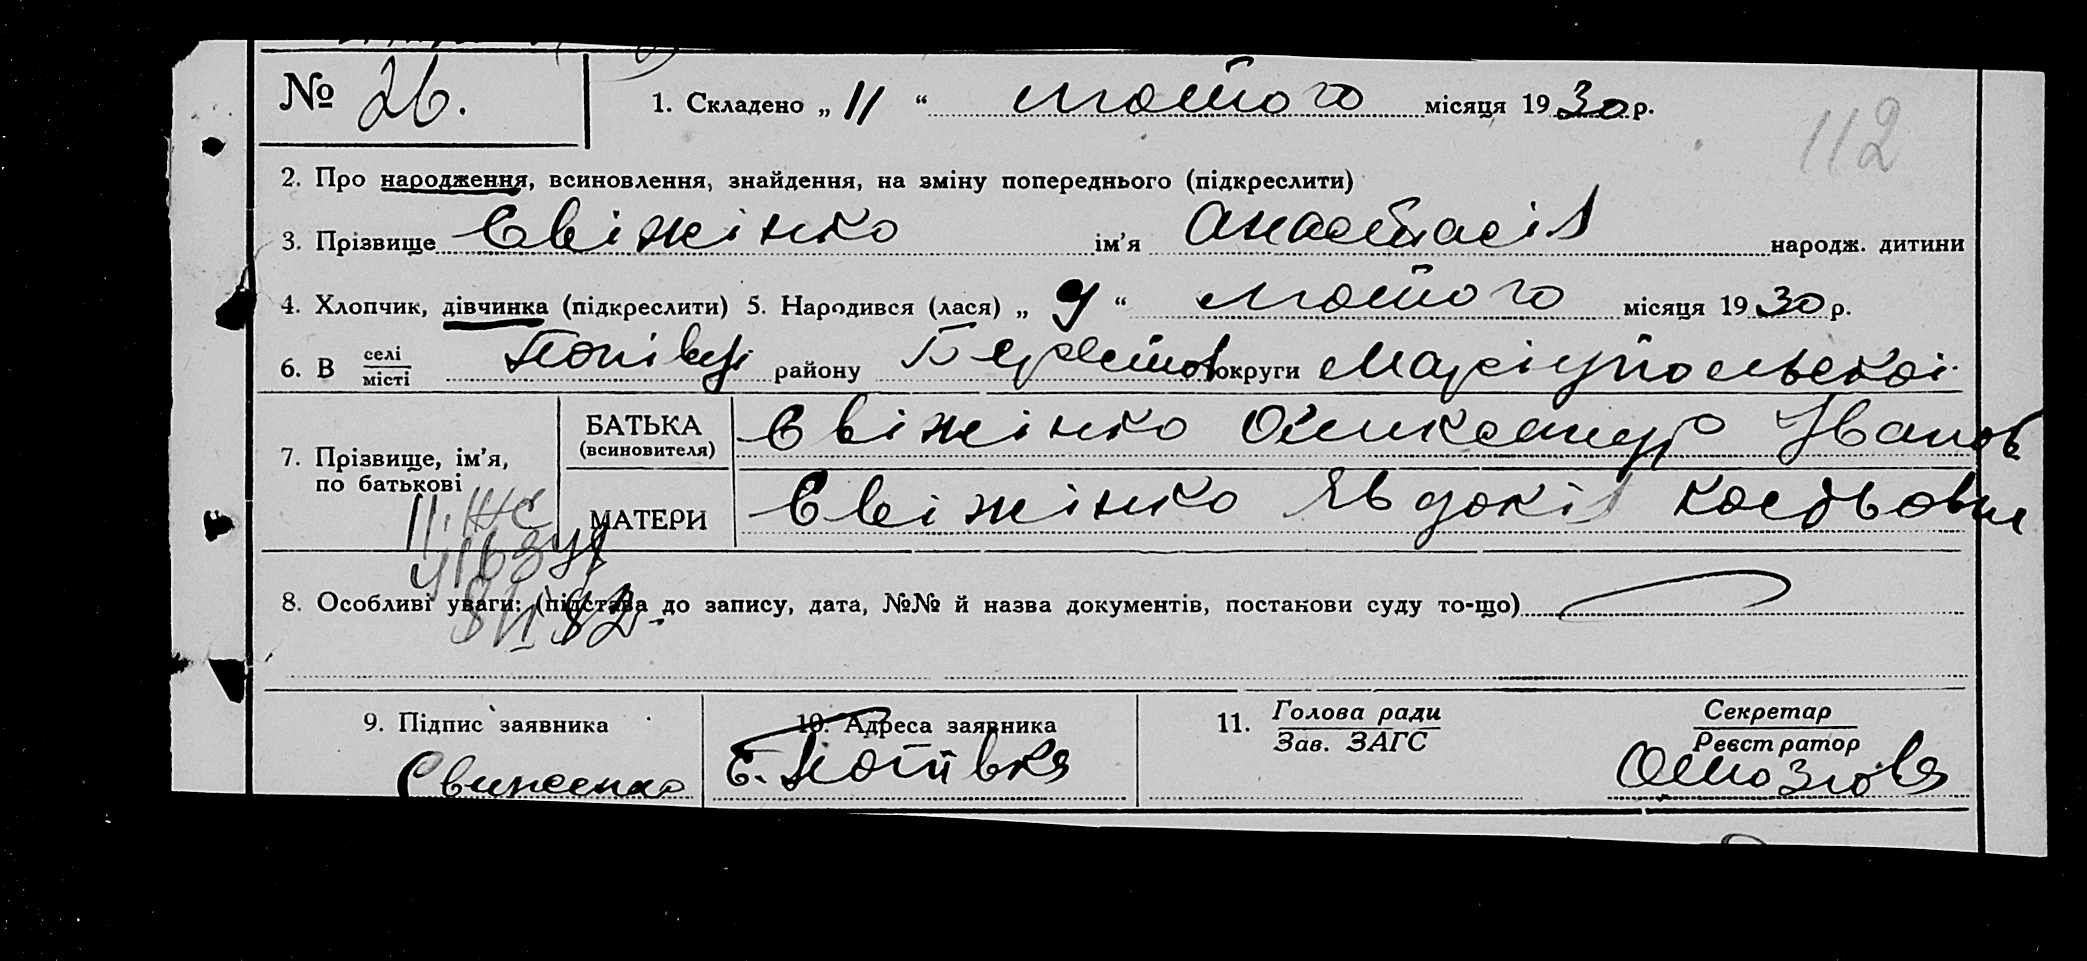 № 26. 1. Складено „ 11 “ лютого місяця 1930 р.
112
2. Про народження, всиновлення, знайдення, на зміну попереднього (підкреслити)
3. Прізвище Свіжінко ім’я Анастасія народж. дитини
4. Хлопчик, дівчинка (підкреслити) 5. Народився (лася) „ 9 “ лютого місяця 1930 р.
6. В селі/місті району округи Маріупольскої
7. Прізвище, ім’я, по батькові
БАТЬКА (всиновителя) Свіжінко Олександр Іванов
МАТЕРИ Свіжінко Явдокія
8. Особливі уваги: (підстава до запису, дата, №№ й назва документів, постанови суду то-що)
9. Підпис заявника 10. Адреса заявника 11. Голова ради Секретар
Зав. ЗАГС Реєстратор
Свиженко